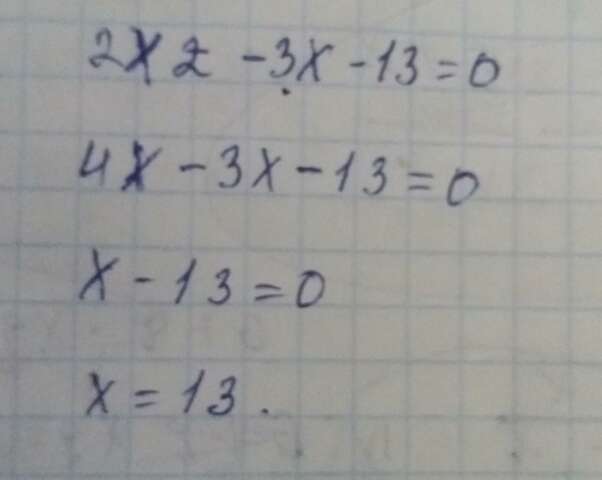 2x2 -3x -13=0
4x -3x -13=0
x -13=0
x = 13.